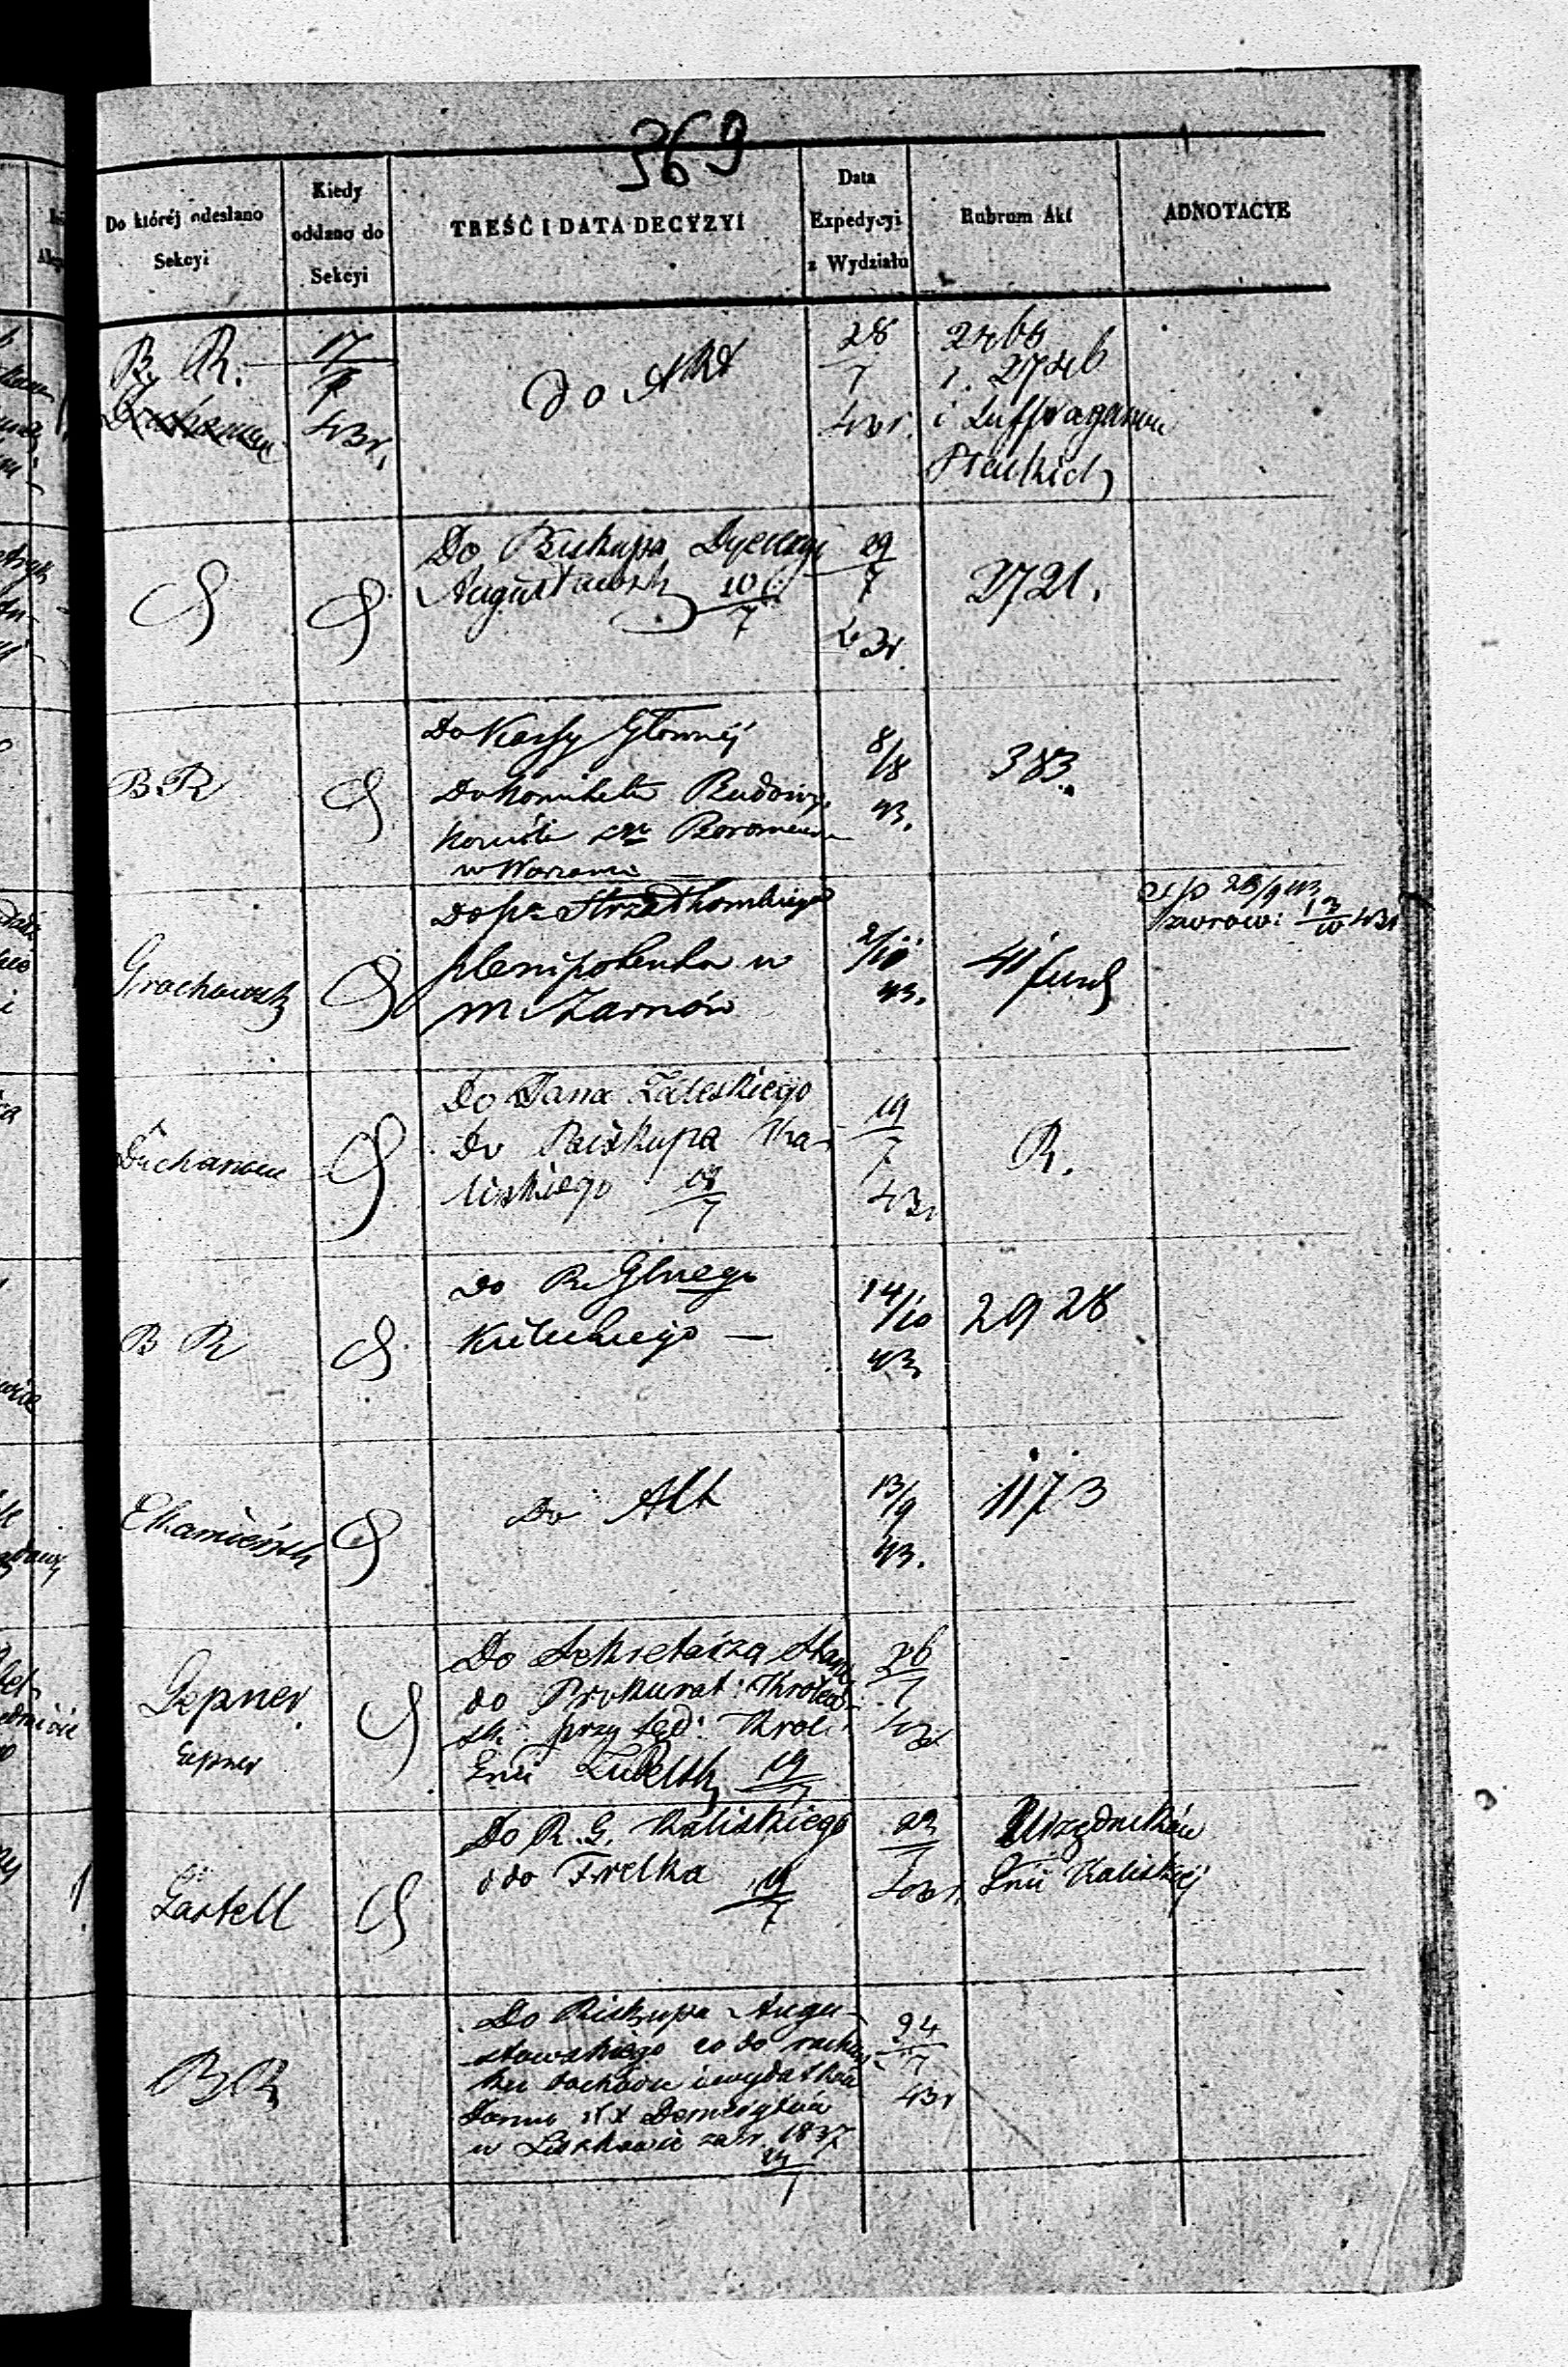 369
Do któréj odesłano
Sekcyi
Kiedy
oddano do
Sekcyi
TREŚĆ I DATA DECYZYI
Data
Expedycyi
z Wydziału
Rubrum Akt
ADNOTACYE
B. R.
17
7
43r.
do Akt
28
7
43r.
i Suffraganów
Płockich
Do Biskupa Dyecezyi
Augustowsk 10
7
29
7
43r.
2721.
B R
Do Kassy Głównéj
Do Komitetu Budowy
Kościoła Boromeusza
w Warszawie
8/8
43.
383.
Grochowsk
plenipotenta w
m. Żarnów
43.
41 fund
43r
Duchanow
Do Pana Zaleskiego
Do Biskupa Ka-
liskiego 18
7
19
7
43r
R.
B R
Do R. Głnego
Kieleckiego —
14/10
43.
2928
E Kamieńsk
Do Akt
13/9
43.
1173
Gepner
Gepner
Do Sekretarza Stanu
do Prokurat: Królews
sk: przy Sąd: Krol:
Gnii Lubelsk 19
7
26
7
43r
Gastell
Do R. G. Kaliskiego
i do Frelka 19
7
23
7
43r.
Urzędników
Gnii Kaliskiéj
B R
Do Biskupa Augu-
stowskiego co do rachun
ku dochodu i wydatków
Domu XX Demerytów
w Liszkowie za r. 1837
24
7
43r